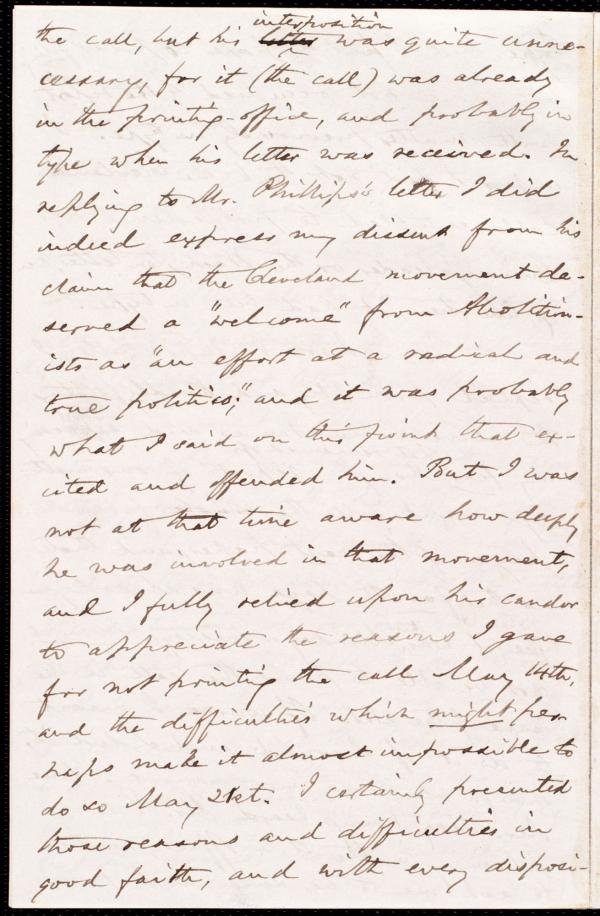 interposition
the call, but his letter was quite unne-
cessary, for it (the call) was already
in the printing-office, and probably in
type when his letter was received. In
replying to Mr. Phillips's letter I did
indeed express my dissent from his
claim that the Cleveland movement de-
served a "welcome" from Abolition-
ists as "an effort at a radical and
true politics;" and it was probably
what I said on this point that ex-
cited and offended him. But I was
not at that time aware how deeply
he was involved in that movement,
and I fully relied upon his candor
to appreciate the reasons I gave
for not printing the call May 14th,
and the difficulties which might per-
haps make it almost impossible to
do so May 21st. I certainly presented
those reasons and difficulties in
good faith, and with every disposi-